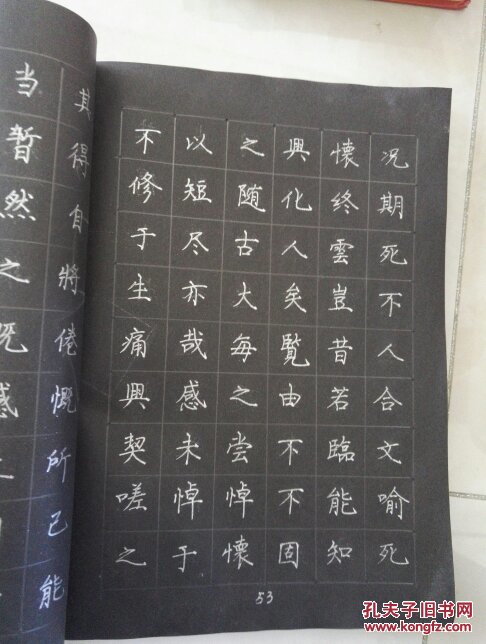 当其
暫得
然自
之將
既倦
感慨
所
己
能
不以之興懷况
修短随化終期
于尽古人雲死
生亦大矣豈不
痛哉每覽昔人
興感之由若合
契未尝不臨文
嗟悼悼不能喻
之于懷固知死
53
孔夫子旧书网
www.kongfz.com